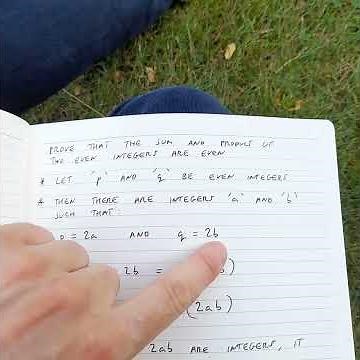 PROVE THAT THE SUM AND PRODUCT OF
THE EVEN INTEGERS ARE EVEN
* LET 'p' AND 'q' BE EVEN INTEGERS
* THEN THERE ARE INTEGERS 'a' AND 'b'
SUCH THAT
p = 2a AND q = 2b
2b = b)
(2ab)
2ab ARE INTEGERS, IT